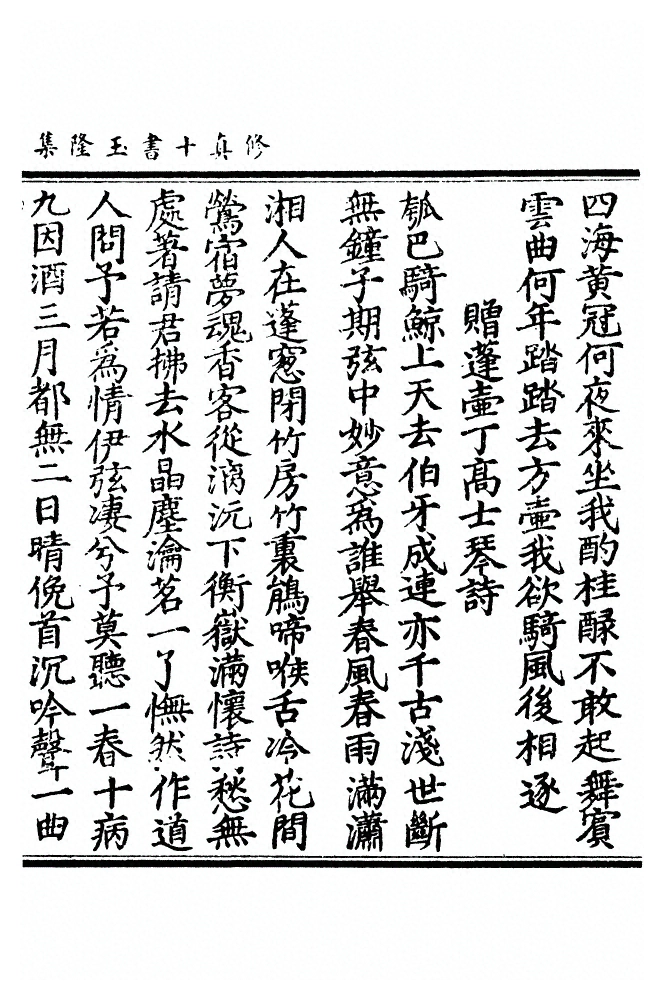 修真十書玉隆集
四海黃冠何夜來坐我酌桂醁不敢起舞賓
雲曲何年踏踏去方壷我欲騎風後相逐
贈蓬壷丁髙士琴詩
瓠巴騎鯨上天去伯牙成連亦千古淺世斷
無鐘子期弦中妙意為誰舉春風春雨滿瀟
湘人在蓬窻閉竹房竹裏鵑啼喉舌冷花間
鶯宿夢魂香客從漓沅下衡嶽滿懷詩愁無
處著請君拂去水晶塵瀹茗一了憮然作道
人問予若為情伊弦凄兮予莫聽一春十病
九因酒三月都無二日晴俛首沉吟聲一曲